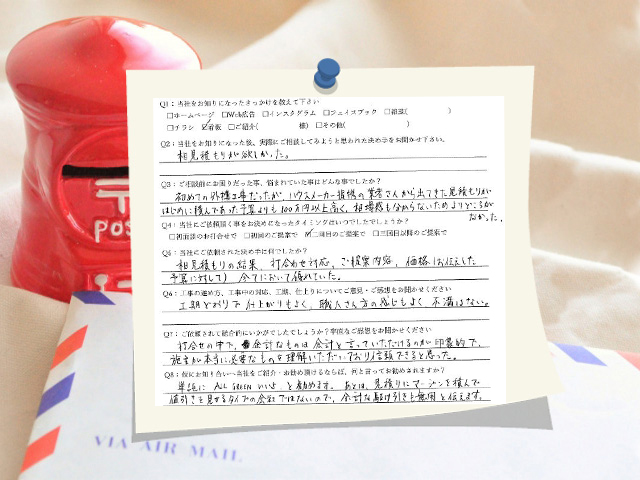 Q1：当社をお知りになったきっかけを教えて下さい
□ホームページ □Web広告 □インスタグラム □フェイスブック □雑誌( )
□チラシ ☑看板 □ご紹介( 様) □その他( )
Q2：当社をお知りになった後、実際にご相談してみようと思われた決め手をお聞かせ下さい。
相見積もりが欲しかった。
Q3：ご相談前にお困りだった事、悩まれていた事はどんな事でしたか？
初めての外構工事だったが、ハウスメーカー指構の業者さんから出てきた見積もりが
はじめに積んであった予算よりも100万円以上高く、相場感も分からないためよりどころが
なかった。
Q4：当社にご依頼頂く事をお決めになったタイミングはいつでしたでしょうか？
□初面談のお打合せで □初回のご提案で ☑二回目のご提案で □三回目以降のご提案で
Q5：当社にご依頼された決め手は何でしたか？
相見積もりの結果、打合わせ対応、ご提案内容、価格(お伝えした
予算に対して) 全てにおいて優れていた。
Q6：工事の進め方、工事中の対応、工期、仕上りについてご意見・ご感想もお聞かせください
工期どおりで仕上がりもよく、職人さん方の感じもよく、不満はない。
Q7：ご依頼されて総合的にいかがでしたでしょうか？率直なご感想をお聞かせください
打合せの中で、余計なものは余計と言っていただけるのが印象的で、
施主が本当に必要なものを理解いただいており信頼できると思った。
Q8：仮にお知り合いへ当社をご紹介・お勧め頂けるならば、何と言ってお勧めされますか？
単純に ALL GREEN いいよ、と勧めます。あとは、見積りにマージンを積んで
値引きを見せるタイプの会社ではないので、余計な駆け引きも無用と伝えます。
POS
VIA AIR MAIL